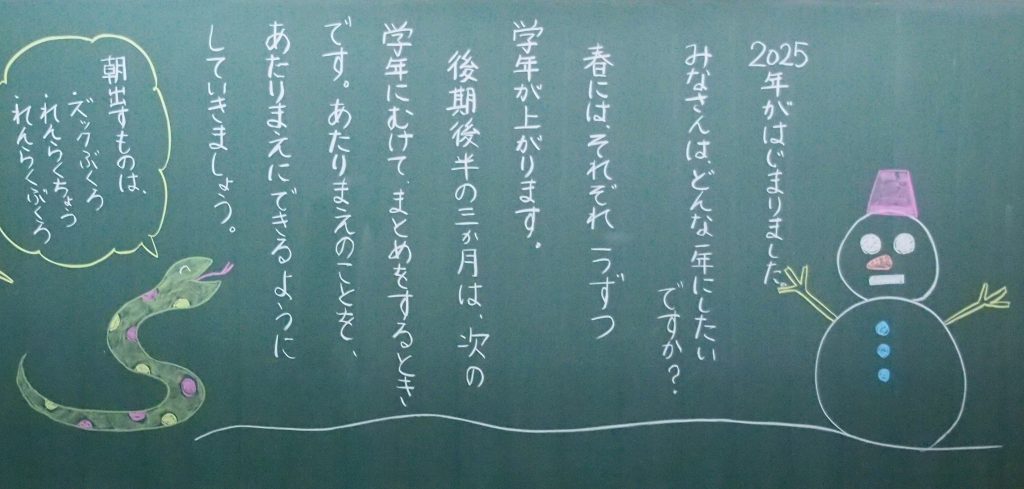 2025年がはじまりました。
みなさんは、どんな一年にしたい
ですか？
春には、それぞれ一つずつ
学年が上がります。
後期後半の三か月は、次の
学年にむけて、まとめをするとき
です。あたりまえのことを、
あたりまえにできるように
していきましょう。
朝出すものは、
・ズックぶくろ
・れんらくちょう
・れんらくぶくろ